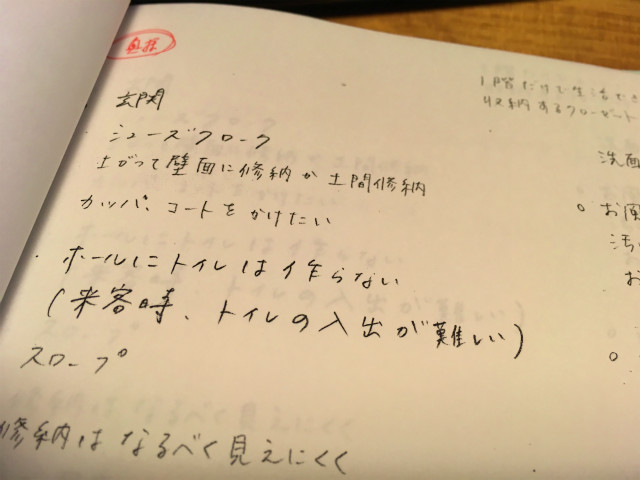 玄関
シューズクローク
上がって壁面に修納か土間修納
カッパ、コートをかけたい
・ホールにトイレは作らない
(来客時、トイレの入出が難しい)
スロープ
修納はなるべく見えにくく
1階だけで生活でき
収納するクローゼット
洗面
○お風
汚
お
○